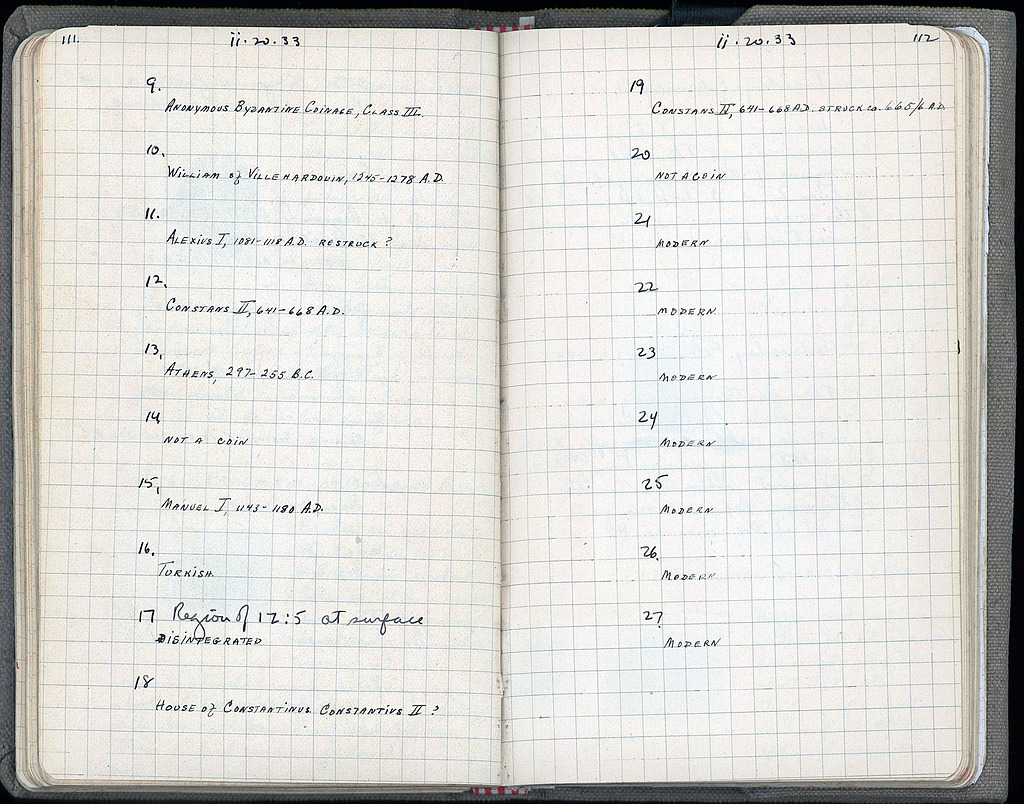 111.
ii.20.33
9.
ANONYMOUS BYZANTINE COINAGE, CLASS III.
10.
WILLIAM of VILLEHARDOUIN, 1245-1278 A.D.
11.
ALEXIUS I, 1081-1118 A.D. RESTRUCK?
12.
CONSTANS II, 641-668 A.D.
13.
ATHENS, 297-255 B.C.
14
NOT A COIN
15.
MANUEL I, 1143-1180 A.D.
16.
TURKISH.
17 Region of 12:5 at surface
DISINTEGRATED
18
HOUSE of CONSTANTINUS. CONSTANTIUS II?
ii.20.33
112
19
CONSTANS II, 641-668 A.D. STRUCK ca. 665/6 A.D.
20
NOT A COIN
21
MODERN
22
MODERN.
23
MODERN
24
MODERN
25
MODERN
26.
MODERN
27
MODERN